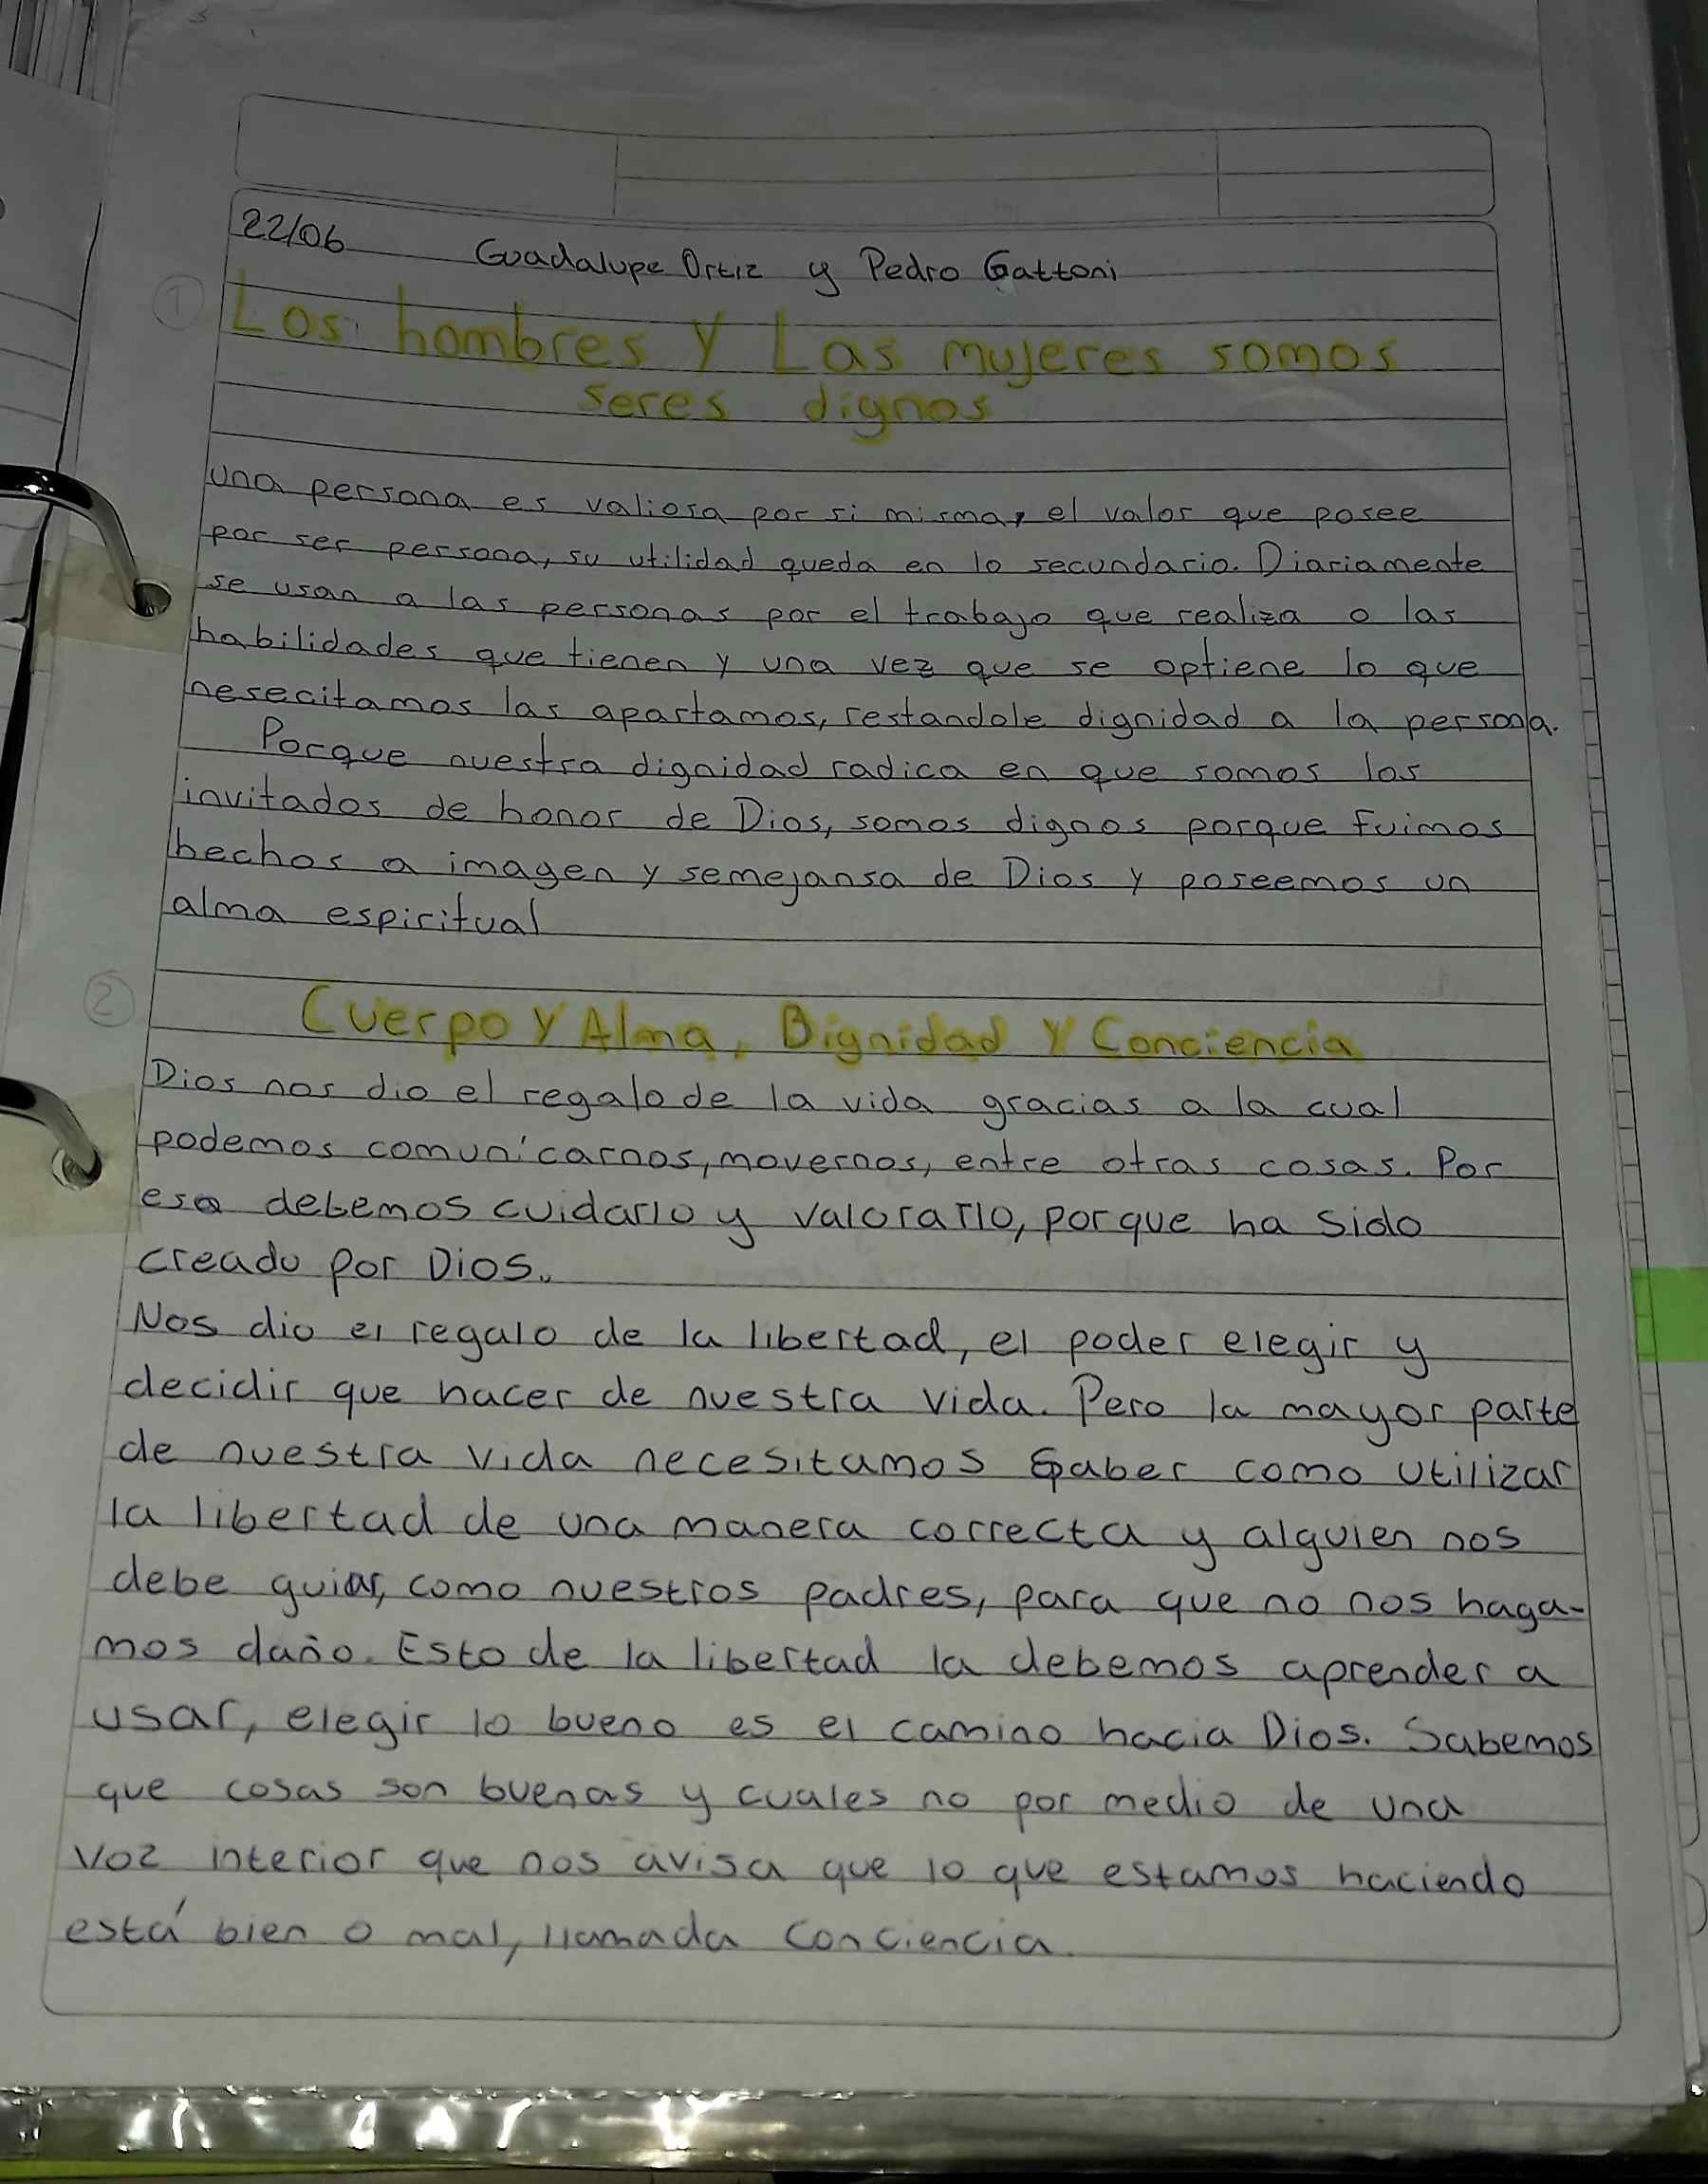 22/06 Guadalupe Ortiz y Pedro Gattoni
① Los hombres y Las mujeres somos
seres dignos
una persona es valiosa por si misma, el valor que posee
por ser persona, su utilidad queda en lo secundario. Diariamente
se usan a las personas por el trabajo que realiza o las
habilidades que tienen y una vez que se optiene lo que
nesecitamos las apartamos, restandole dignidad a la persona.
Porque nuestra dignidad radica en que somos los
invitados de honor de Dios, somos dignos porque fuimos
hechos a imagen y semejansa de Dios y poseemos un
alma espiritual
② Cuerpo y Alma, Dignidad y Conciencia
Dios nos dio el regalo de la vida gracias a la cual
podemos comunicarnos, movernos, entre otras cosas. Por
eso debemos cuidarlo y valorarlo, porque ha sido
creado por Dios.
Nos dio el regalo de la libertad, el poder elegir y
decidir que hacer de nuestra vida. Pero la mayor parte
de nuestra vida necesitamos saber como utilizar
la libertad de una manera correcta y alguien nos
debe guiar, como nuestros padres, para que no nos haga-
mos daño. Esto de la libertad la debemos aprender a
usar, elegir lo bueno es el camino hacia Dios. Sabemos
que cosas son buenas y cuales no por medio de una
voz interior que nos avisa que lo que estamos haciendo
está bien o mal, llamada conciencia.